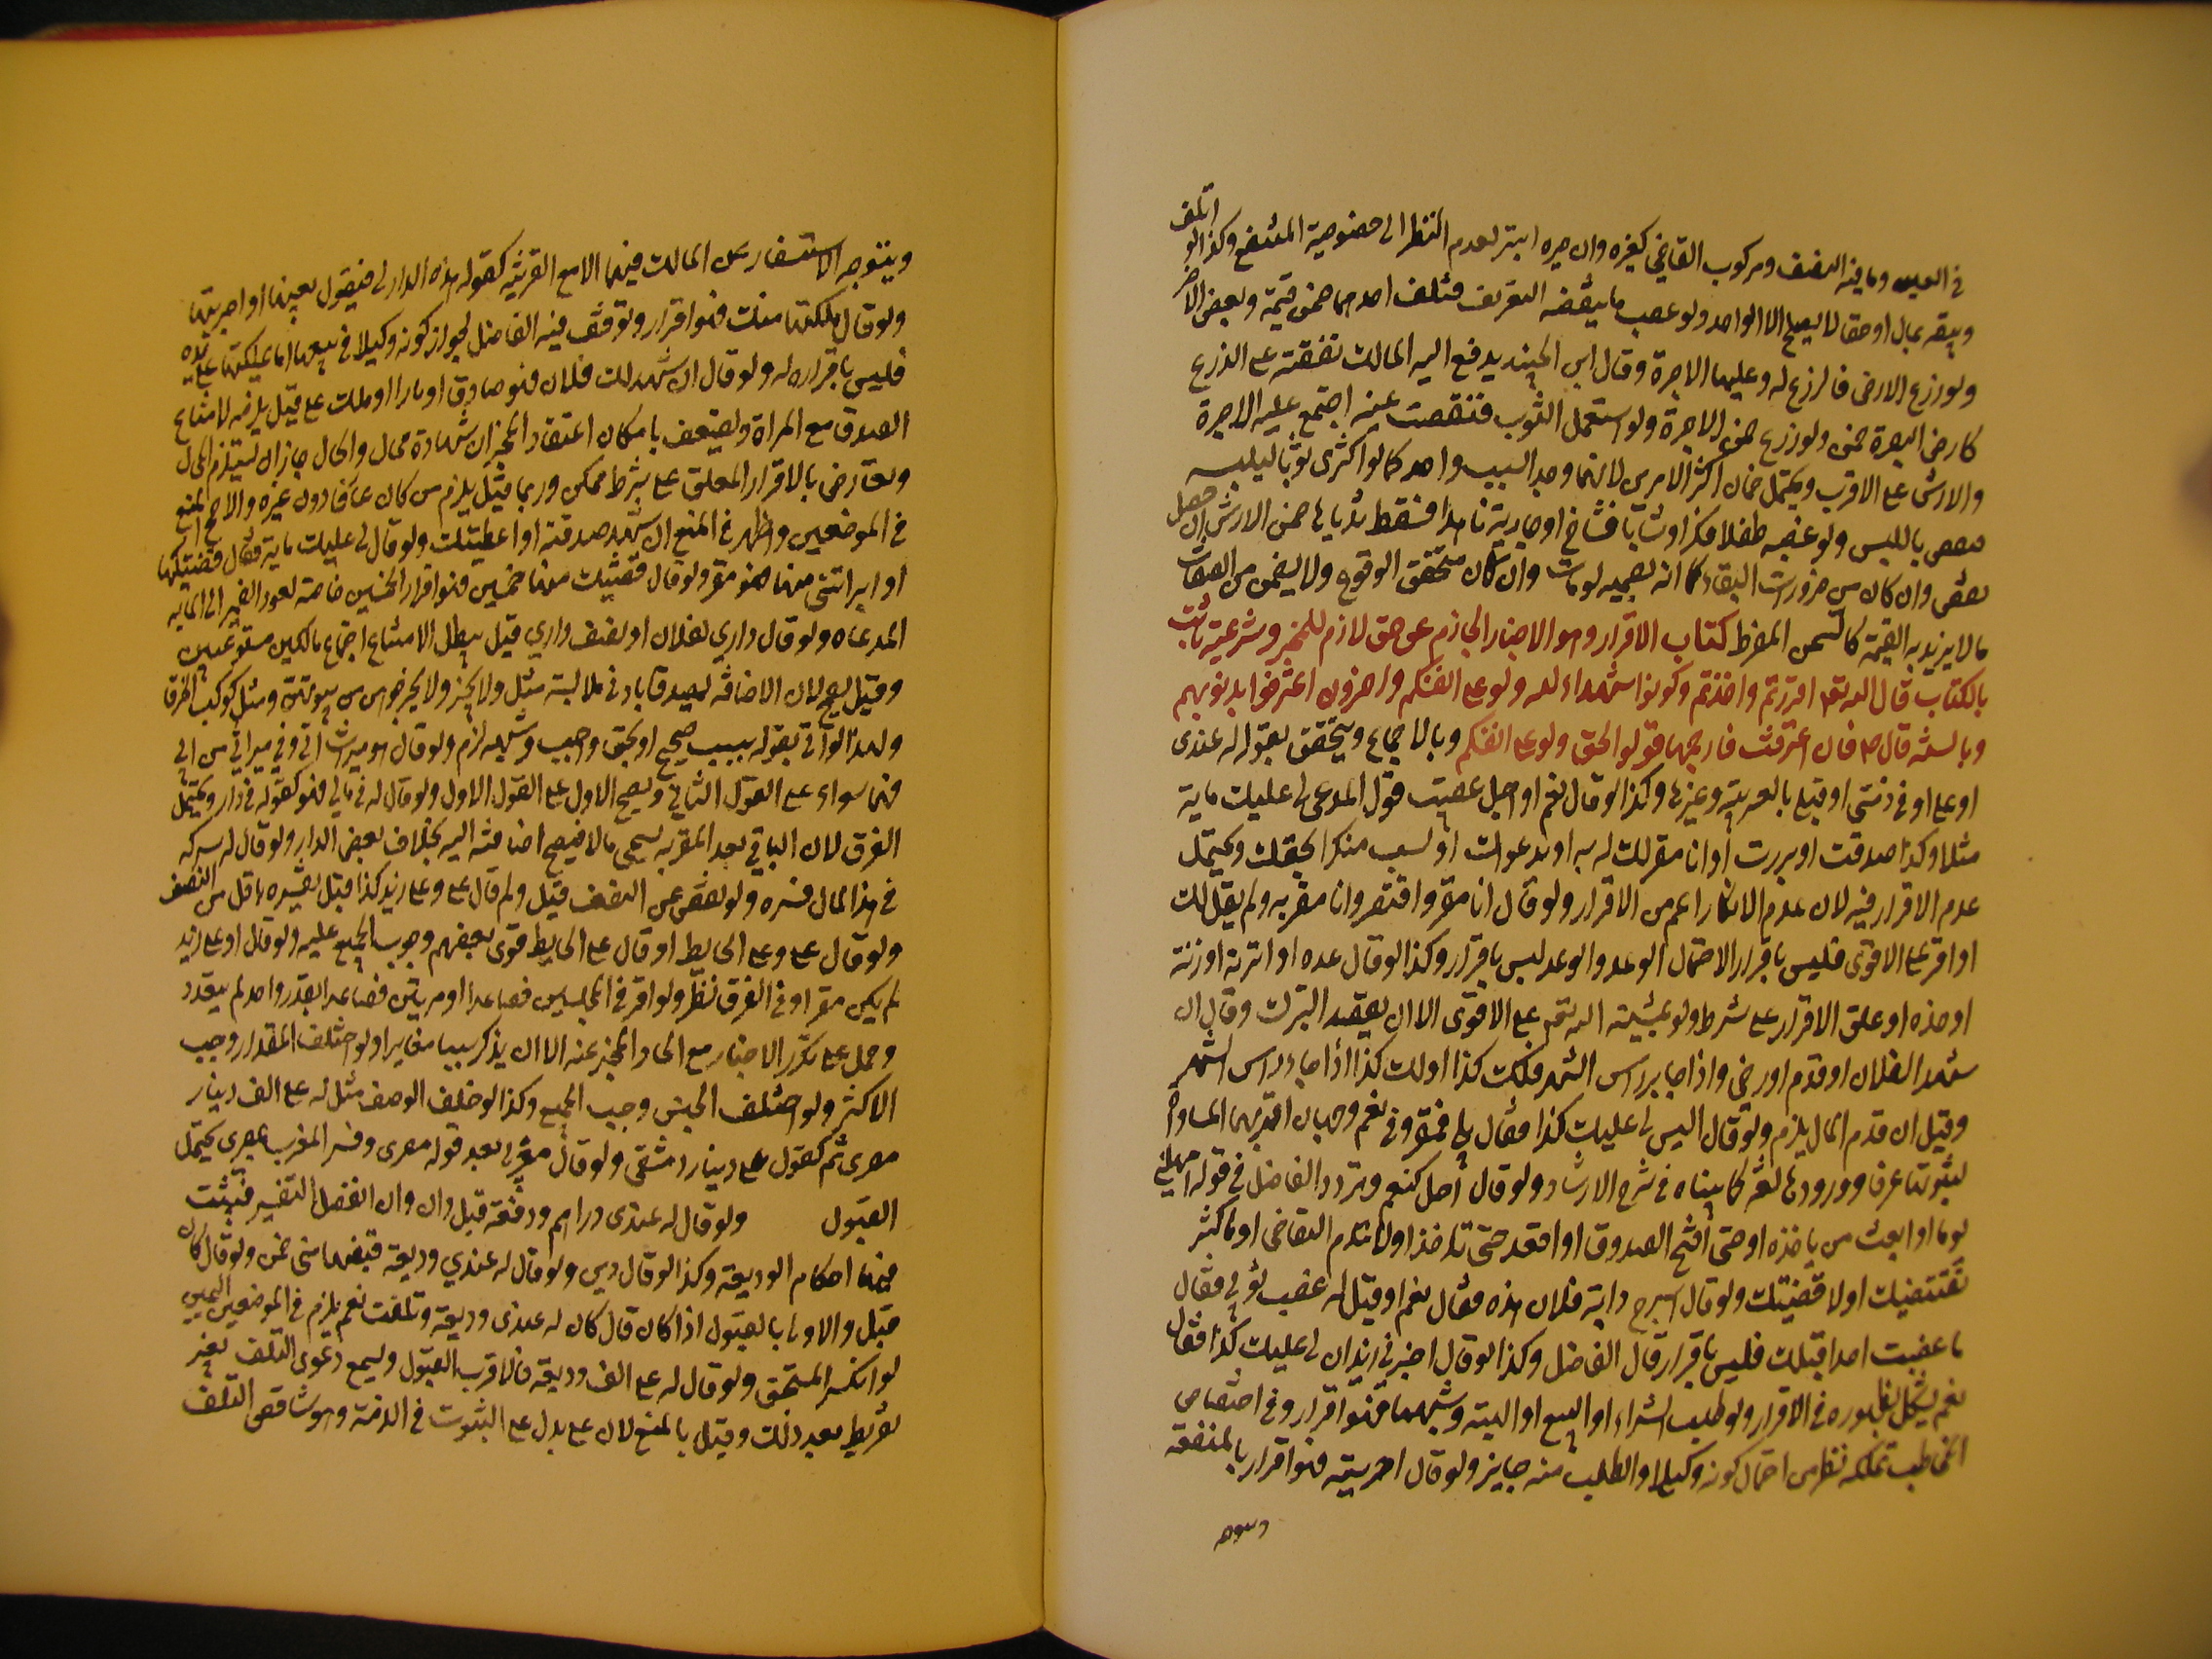 في العين وما فيه النصف ومركوب القاضي كغيره وان صيره ابتر لعدم النظر الى خصوصية المنتفع وكذا لو اتلف
وبيقه بمال او حقا لا يصلح الا لواحد ولو غصب ما ينقصه التفريق فتلف احدهما ضمن قيمة ونقص الاخر
ولو زرع الارض فالزرع له وعليه الاجرة وقال ابن الجنيد يدفع اليه المالك نفقته على الزرع
كارض البصرة ضمن ولو زرع ضمن الاجرة ولو استعمل الثوب فنقصت عينه اجتمع عليه الاجرة
والارش على الاقرب ويحتمل ضمان اكثر الامرين لانهما وجدا لسبب واحد كما لو اكترى ثوبا ليلبسه
فنقص باللبس ولو غصبه طفلا فكبر او شابا فشاخ او جارية ناهدا فسقط ثدياها ضمن الارش ان حصل
نقص وان كان من ضرورات البقاء كما انه يضمنه لو مات وان كان متحقق الوقوع ولا يضمن من الصفات
ما لا يزيد به القيمة كالسمن المفرط كتاب الاقرار وهو الاخبار الجازم عن حق لازم للمخبر وشرعيته ثابتة
بالكتاب قال الله تعالى اقررتم واخذتم وكونوا شهداء لله ولو على انفسكم واخرون اعترفوا بذنوبهم
وبالسنة قال ص فان اعترفت فارجمها قولوا الحق ولو على انفسكم وبالاجماع ويتحقق بقوله له عندي
او علي او في ذمتي او قبلي بالعربية وغيرها وكذا لو قال نعم او اجل عقيب قول المدعي لي عليك ماية
مثلا وكذا صدقت او بررت او انا مقر لك به او بدعواك او لست منكرا لحقك ويحتمل
عدم الاقرار فيه لان عدم الانكار اعم من الاقرار ولو قال انا مقر واقتصر وانا مقر به ولم يقل لك
او اقر على الاقوى فليس باقرار لاحتمال الوعد والوعد ليس باقرار وكذا لو قال عده او اتزنه او زنه
او خذه او علق الاقرار على شرط ولو بمشيته الله تعالى على الاقوى الا ان يقصد التبرك وقال ان
شهد الفلان او قدم او رضي واذا جاء راس الشهر فلك كذا او لك كذا اذا جاء راس الشهر
وقيل ان قدم المال يلزم ولو قال اليس لي عليك كذا فقال بلى فمقر وفي نعم وجهان اقربهما المساواة
لثبوتها عرفا وورودها لغة كما بيناه في شرح الارشاد ولو قال اجل كنعم وتردد الفاضل في قوله امهلني
يوما او ابعث من ياخذه او حتى افتح الصندوق او اقعد حتى تاخذ او لا تدم التقاضي او ما اكثر
تقتضيك او لاقضينك ولو قال اسرج دابة فلان هذه فقال نعم او قيل له غصبت ثوبي فقال
ما غصبت احدا قبلك فليس باقرار قال الفاضل وكذا لو قال اخبرني زيد ان لي عليك كذا فقال
نعم يشكل لظهوره في الاقرار ولو طلب الشراء او البيع او الهبة وشبهها فهو اقرار وفي اختصاص
المخاطب بملكه نظر من احتمال كونه وكيلا والطلب منه جايز ولو قال اجرنيه فهو اقرار بالمنفعة
ويتوجه الاستفسار عن المالك فيهما الا مع القرينة كقوله هذه الدار لي فيقول بعنيها او اجرنيها
ولو قال ملكتها منك فهو اقرار وتوقف فيه الفاضل لجواز كونه وكيلا في بيعها اما تملكتها على يده
فليس باقرار له ولو قال ان شهد لك فلان فهو صادق او بار على قيل يلزمه لامتناع
الصدق مع المراة ويضعف بامكان اعتقاد المخبر ان شهادة محال والمحال جاز ان يستلزم المحال
وتعارض بالاقرار المعلق على شرط ممكن وربما قيل يلزم من كان عارفا دون غيره والاصح المنع
في الموضعين واظهر في المنع ان شهد صدقته او اعطيتك ولو قال لي عليك ماية فقال قضيتكها
او ابراتني منها فهو مقر ولو قال قضيتك منها خمسين فهو اقرار الخمسين خاصة لعود الضمير الى الماية
المدعاة ولو قال داري لفلان او نصف داري قيل يبطل لامتناع اجتماع مالكين مستوعبين
وقيل يصح لان الاضافة يصدق بادنى ملابسة مثل ولا يخرجوهن من بيوتهن ومثل كوكب الخرقا
ولهذا لو اتى بقوله بسبب صحيح او بحق واجب وشبهه لزم ولو قال هو ميراث ابي وفي ميراثي من ابي
فهما سواء على القول الثاني ويصح الاول على القول الاول ولو قال له في مالي فهو كقوله في داري ويحتمل
الفرق لان الباقي بعد المقر به يسمى مالا فيصح اضافته اليه بخلاف بعض الدار ولو قال له شركه
في هذا المال فسره ولو نقص عن النصف قيل ولو قال علي وعلى زيد كذا قبل تفسيره باقل من النصف
ولو قال علي وعلى الحايط او قال على الحايط قوى بعضهم وجوب الجميع عليه ولو قال او على زيد
لم يكن مقرا وفي الفرق نظر ولو اقر في مجلسين فصاعدا او مرتين فصاعدا بقدر واحد لم يتعدد
وحمل على تكرر الاخبار مع اتحاد المخبر عنه الا ان يذكر سببا مغايرا ولو اختلف المقدار وجب
الاكثر ولو اختلف الجنس وجب الجميع وكذا لو اختلف الوصف مثل له علي الف دينار
مصري ثم كقول علي دينار دمشقي ولو قال مقر لي بعد قوله مصري وفسر المغرب بمصري يحتمل
القبول ولو قال له عندي دراهم وديعة قبل وان انفصل التفسير فيثبت
فيها احكام الوديعة وكذا لو قال دين ولو قال له عندي وديعة قبضها مني ضمن ولو قال كان
قبل والاولى بالقبول اذا كان قال كان له عندي وديعة وتلفت نعم يلزم في الموضعين اليمين
لو انكر المستحق ولو قال له علي الف وديعة فالاقرب القبول ويسمع دعوى التلف بغير
تفريط بعد ذلك وقيل بالمنع لان علي يدل على الثبوت في الذمة وهو يناقض التلف